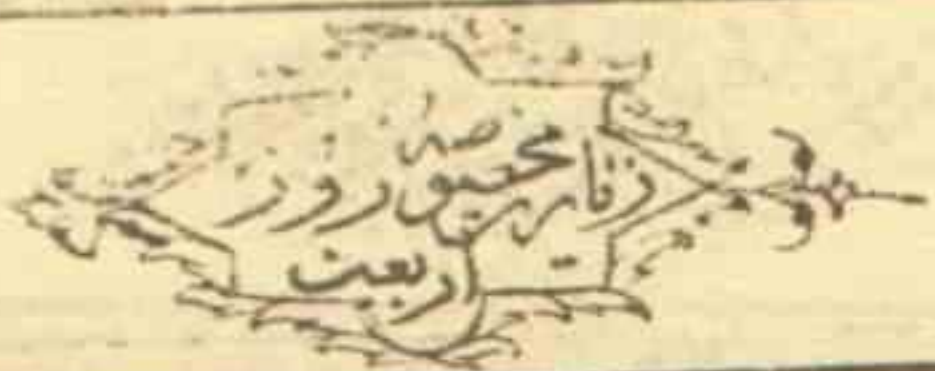 زیارت مخصوصه روز
اربعین